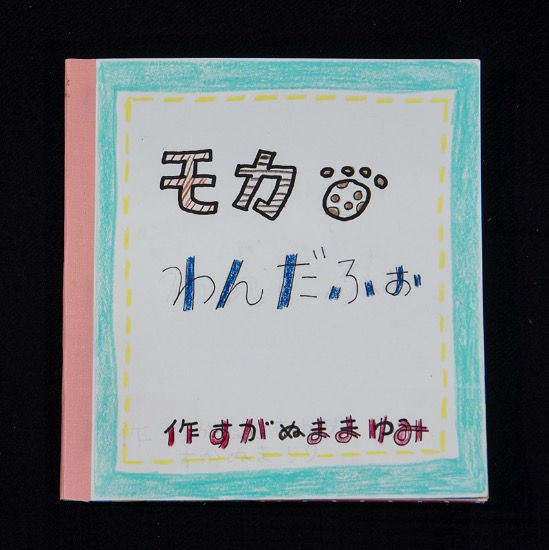 モカ
わんだふぉ
作 すがぬままゆみ